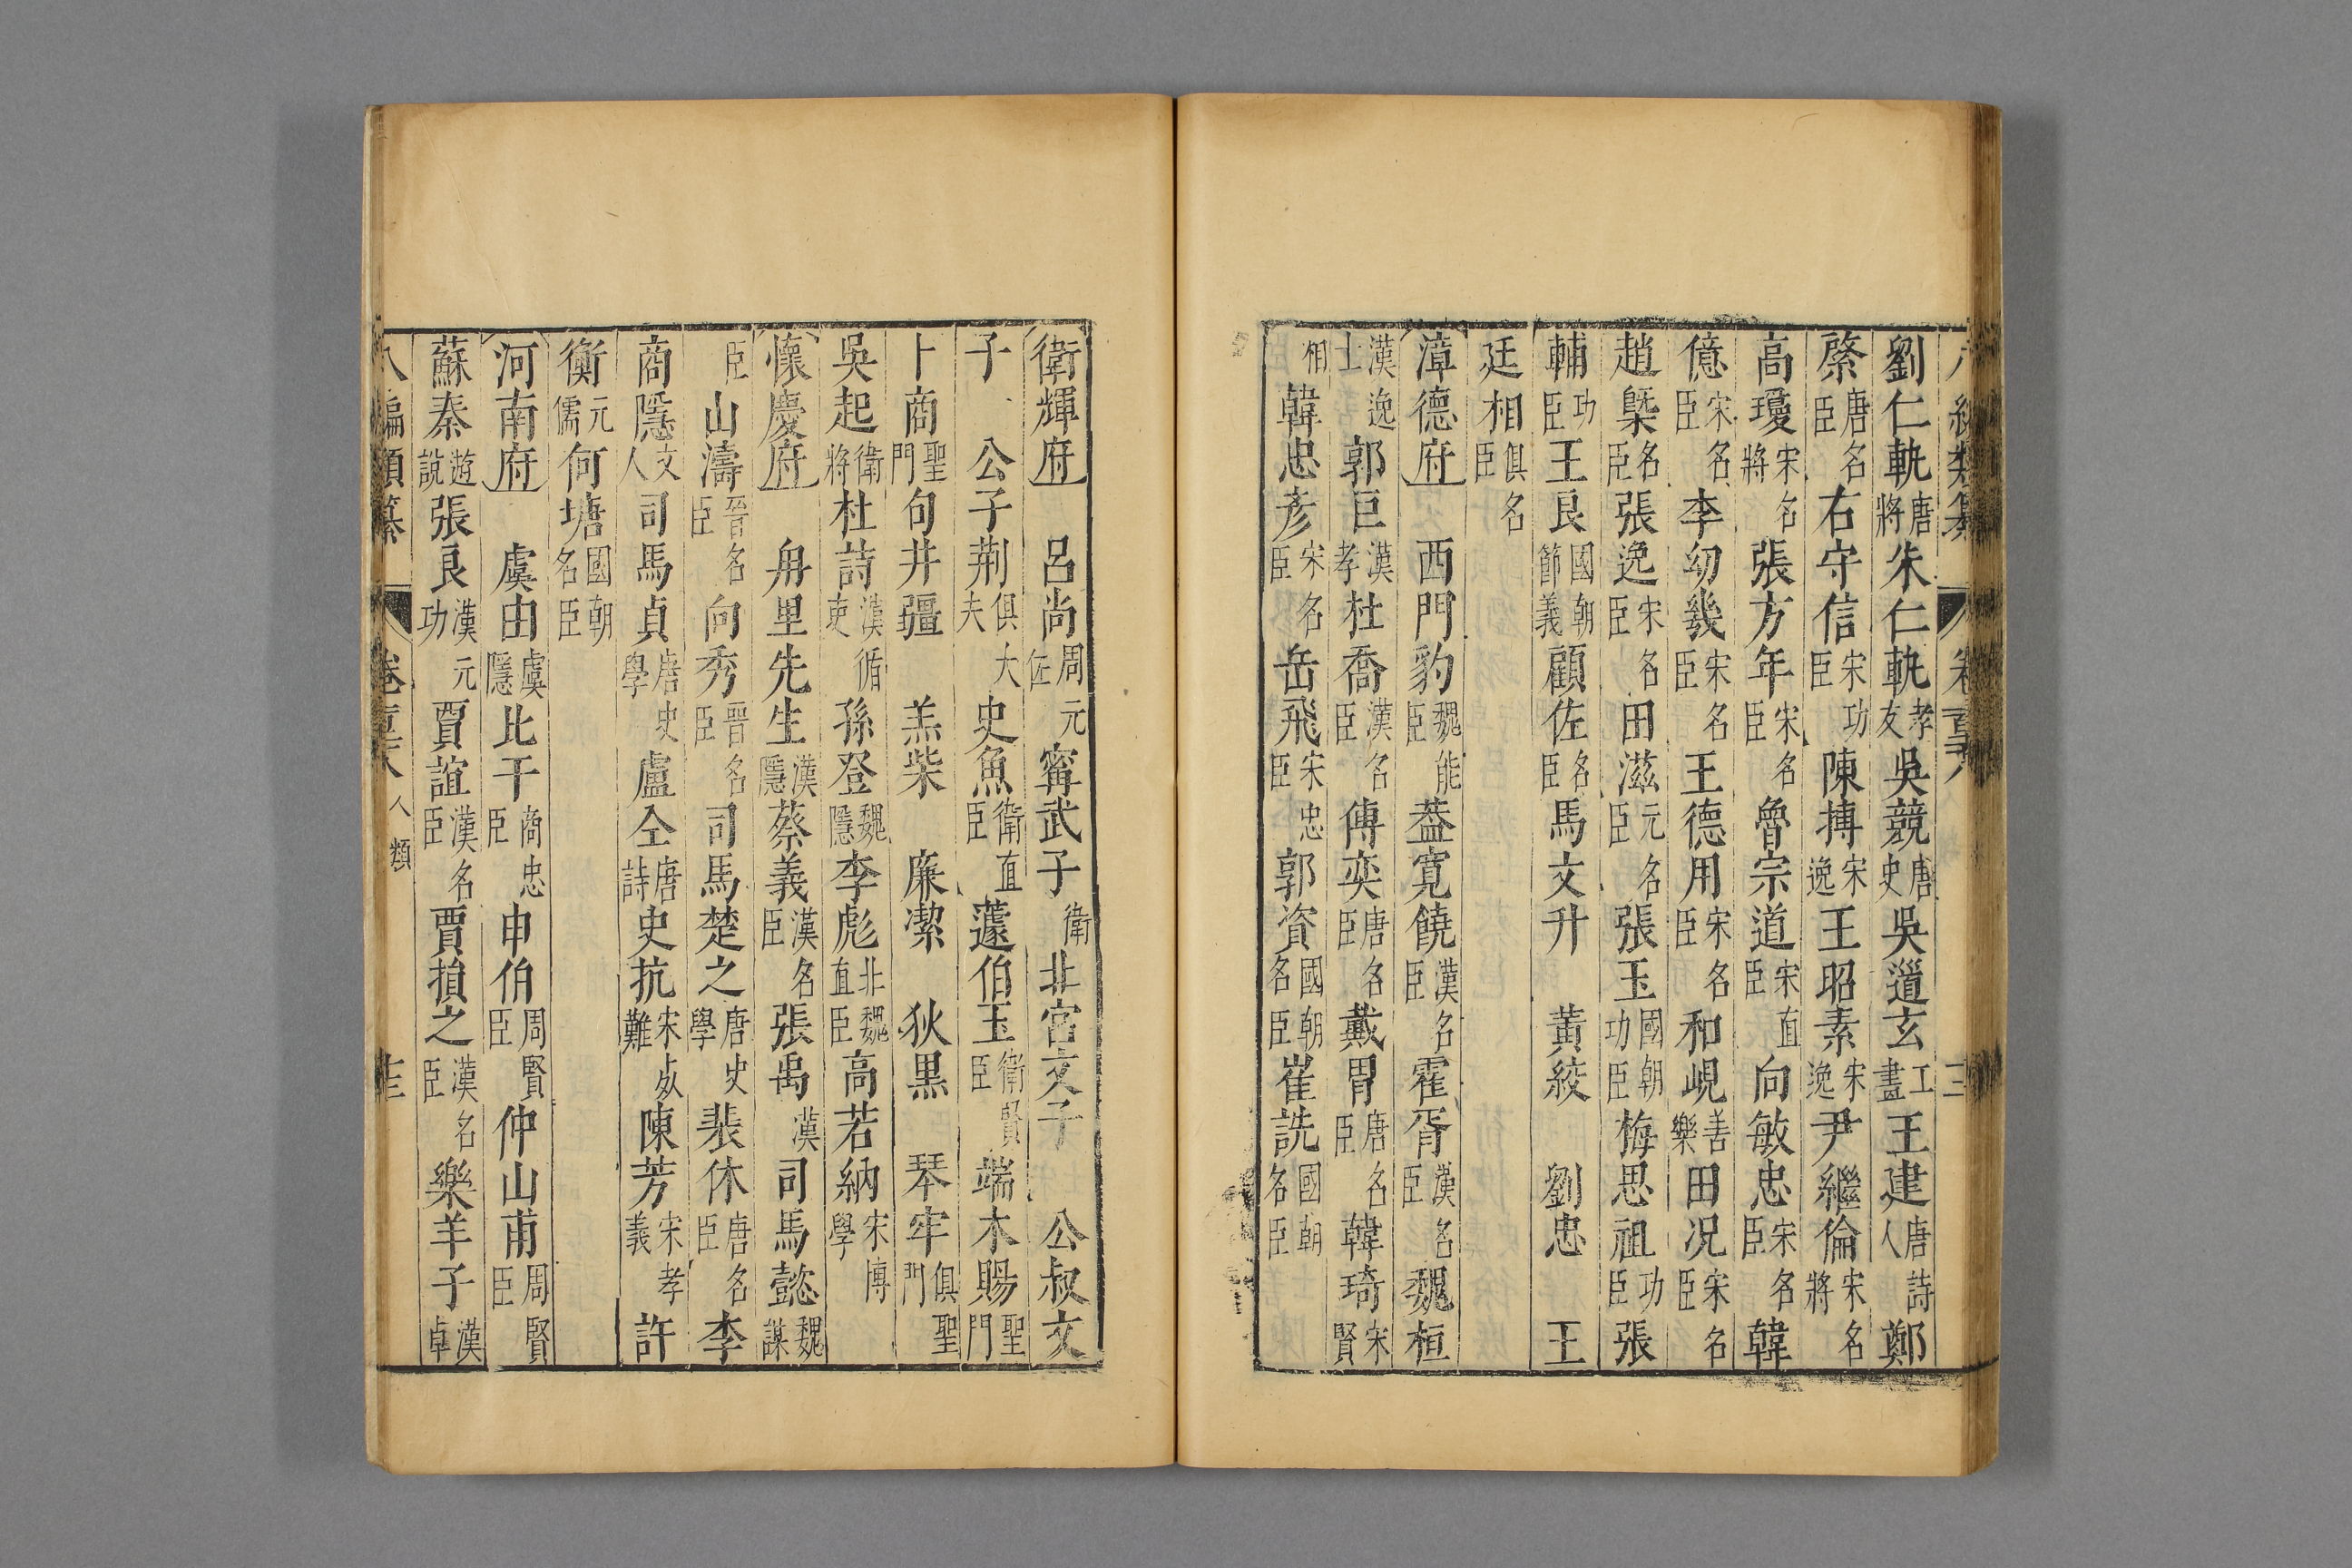 劉仁軌唐將朱仁軌孝友吳競唐史吳道玄工畫王建唐詩人鄭
綮唐名臣右守信宋功臣陳摶宋逸王昭素宋逸尹繼倫宋名將
高瓊宋名將張方年宋名臣魯宗道宋直臣向敏忠宋名臣韓
億宋名臣李幼幾宋名臣王德用宋名臣和峴善樂田況宋名臣
趙㮣名臣張逸宋名臣田滋元名臣張玉國朝功臣梅思祖功臣張
輔功臣王良國朝節義顧佐名臣馬文升黃紋劉忠王
廷相俱名臣
漳德府西門豹魏能臣葢寬饒漢名臣霍胥漢名臣魏桓
漢逸士郭巨漢孝杜喬漢名臣傅奕唐名臣戴胄唐名臣韓琦宋賢
相韓忠彦宋名臣岳飛宋忠臣郭資國朝名臣崔詵國朝名臣
衛輝府呂尚周元佐甯武子衛北宮文子公叔文
子公子荆俱大夫史魚衛直臣蘧伯玉衛賢臣端木賜聖門
卜商聖門句井疆羔柴廉潔狄黒琴牢俱聖門
吳起衛將杜詩漢循吏孫登魏隱李彪北魏直臣高若納宋博學
懷慶府舟里先生漢隱蔡義漢名臣張禹漢司馬懿魏謀
臣山濤晉名臣向秀晉名臣司馬楚之唐史學裴休唐名臣李
商隱文人司馬貞唐史學盧仝唐詩史抗宋死難陳芳宋孝義許
衡元儒何塘國朝名臣
河南府虞由虞隱比干商忠臣申伯周賢臣仲山甫周賢臣
蘇秦遊說張良漢元功賈誼漢名臣賈損之漢名臣樂羊子漢卓
八編類纂 人類